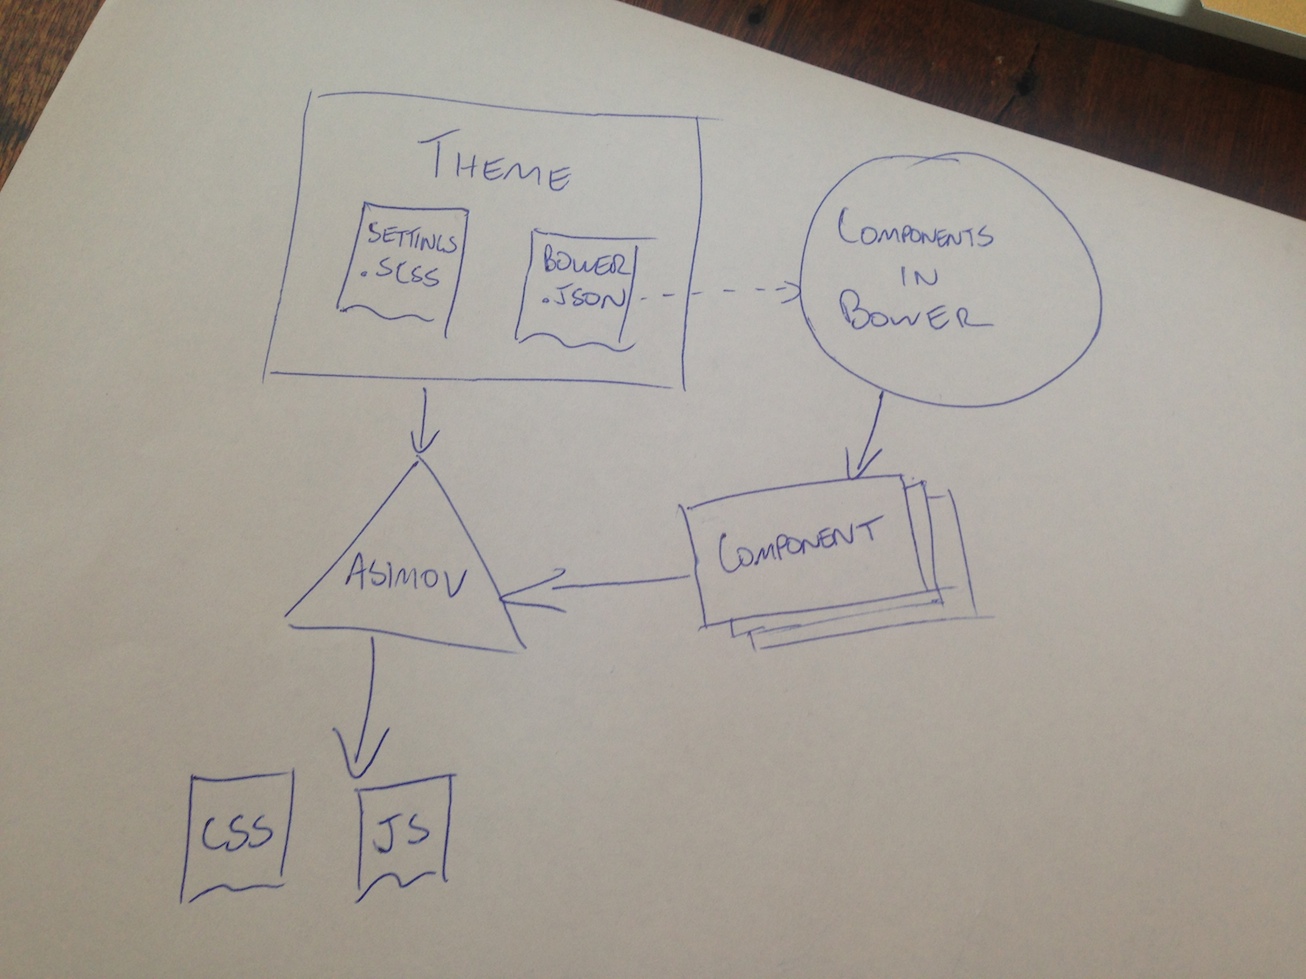 THEME
SETTINGS
.SCSS
BOWER
.JSON
COMPONENTS
IN
BOWER
COMPONENT
ASIMOV
CSS
JS